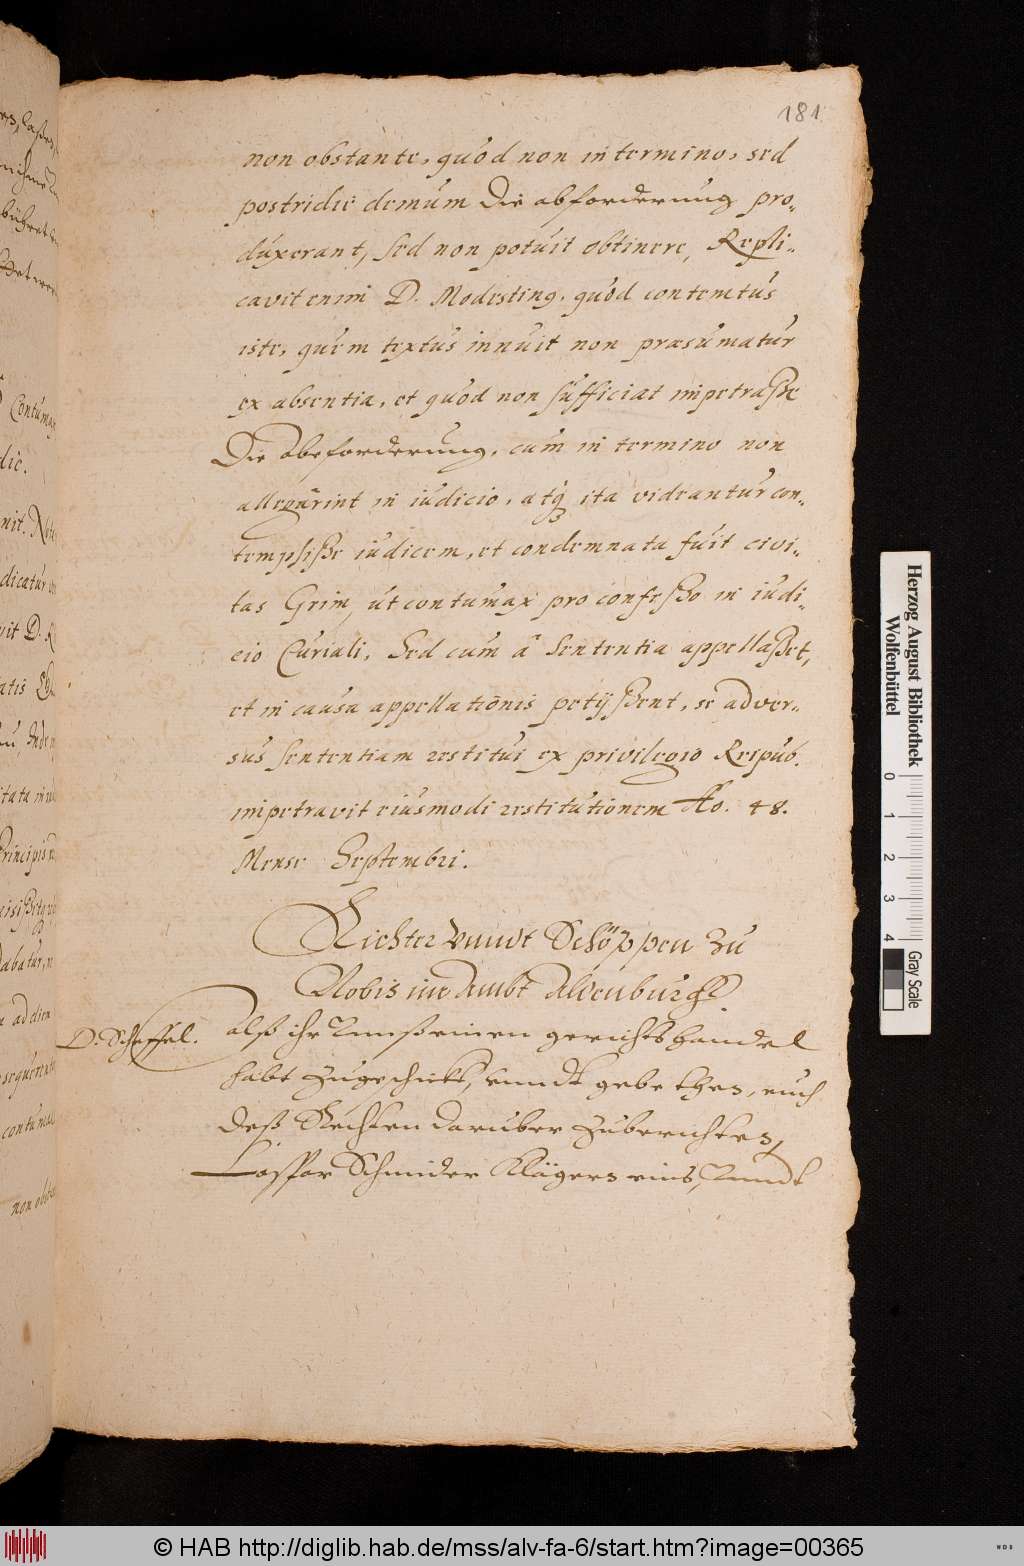 181
non obstante, quod non in termino, sed
postridie demum die abforderung pro-
duxerant, sed non potuit obtinere, Repli-
cavit enim D. Modesting. quod contemtus
iste, quem textus innuit non præsumatur
ex absentia, et quod non sufficiat impetraße
die abeforderung, cum in termino non
allegarint in iudicio, atq3 ita videantur con-
tempsiße iudicem, et condemnata fuit civi-
tas Grim, ut contumax pro confeßo in iudi-
cio Curiali, Sed cum â Sententia appellaßet,
et in causa appellationis petijßent, se adver-
sus sententiam restitui ex privilegio Reipub.
impetravit eiusmodi restitutionem Ao. 48.
Mense Septembri.
Richter vnndt Schöppen zu
im Ambt Aldenburgk
D. Scheffel.
alß ihr Vnnß einen gerichts handel
habt zugeschickt, vnndt gebethen, euch
deß Rechten daruber zuberichten,
Caspar Schmider Klägern eins, Vnndt
Herzog August Bibliothek
Wolfenbüttel
0 1 2 3 4
Gray Scale
© HAB http://diglib.hab.de/mss/alv-fa-6/start.htm?image=00365